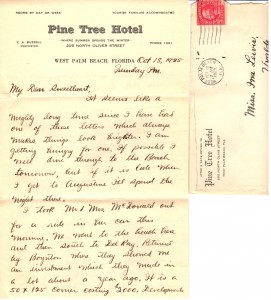 ROOMS BY DAY OR WEEK
TOURIST FAMILIES ACCOMMODATED
Pine Tree Hotel
"WHERE SUMMER SPENDS THE WINTER"
PHONE 1241
WEST PALM BEACH, FLORIDA Oct 13, 1925
My Dear Sweetheart,
It seems like a
mighty long time since I have had
one of those letters which always
make things look brighter. I am
getting things for one, if possible I
will dine through to the Beach
tomorrow, but if it is late when
I get to Augustine I'll spend the
night there.
I took Mr & Mrs McDonald out
for a ride in the car this
morning. We went to the beach here
and then South to DelRay. Returned
by Boynton where they showed me
an investment which they made in
a lot about a year ago. It is a
50 x 125 corner costing 2000. Developments
Miss Ina Lewis,
Pine Tree Hotel